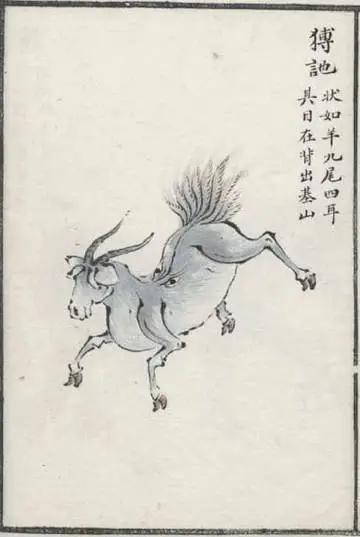 猼訑
狀如羊九尾四耳
其目在背出基山